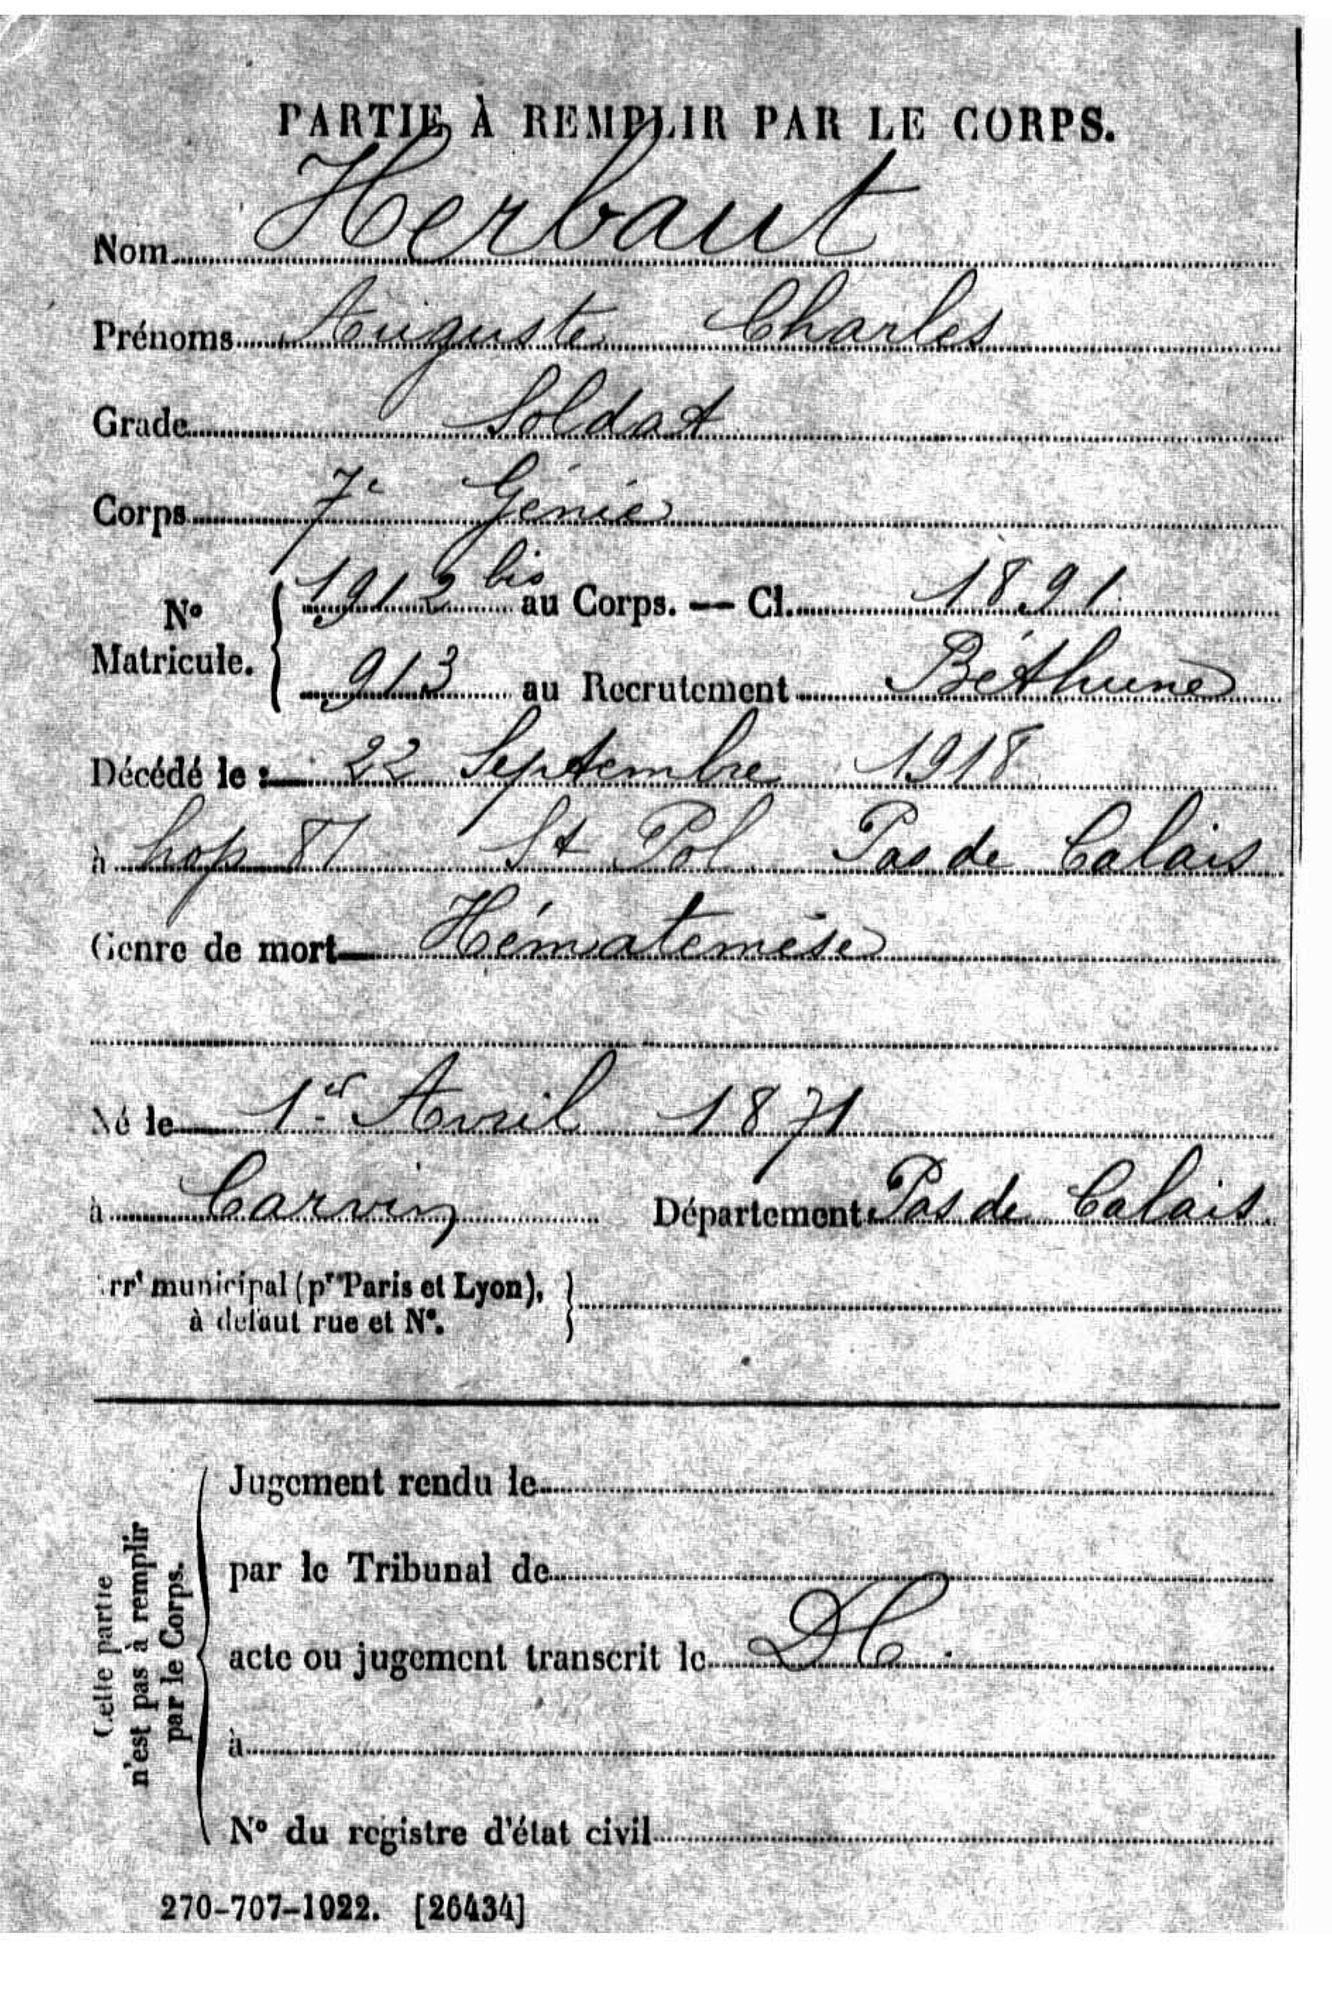 PARTIE À REMPLIR PAR LE CORPS.
Nom Herbaut
Prénoms Auguste Charles
Grade Soldat
Corps 7e Génie
N° Matricule. 1912 bis au Corps. — Cl. 1891
913 au Recrutement Béthune
Décédé le : 22 Septembre 1918
à hop 87 St Pol Pas de Calais
Genre de mort Hématemèse
Né le 1er Avril 1871
à Carvin Département Pas de Calais
rrt municipal (pr Paris et Lyon),
à défaut rue et N°.
Cette partie
n'est pas à remplir
par le Corps.
Jugement rendu le
par le Tribunal de
acte ou jugement transcrit le DC.
à
N° du registre d'état civil
270-707-1922. [26434]